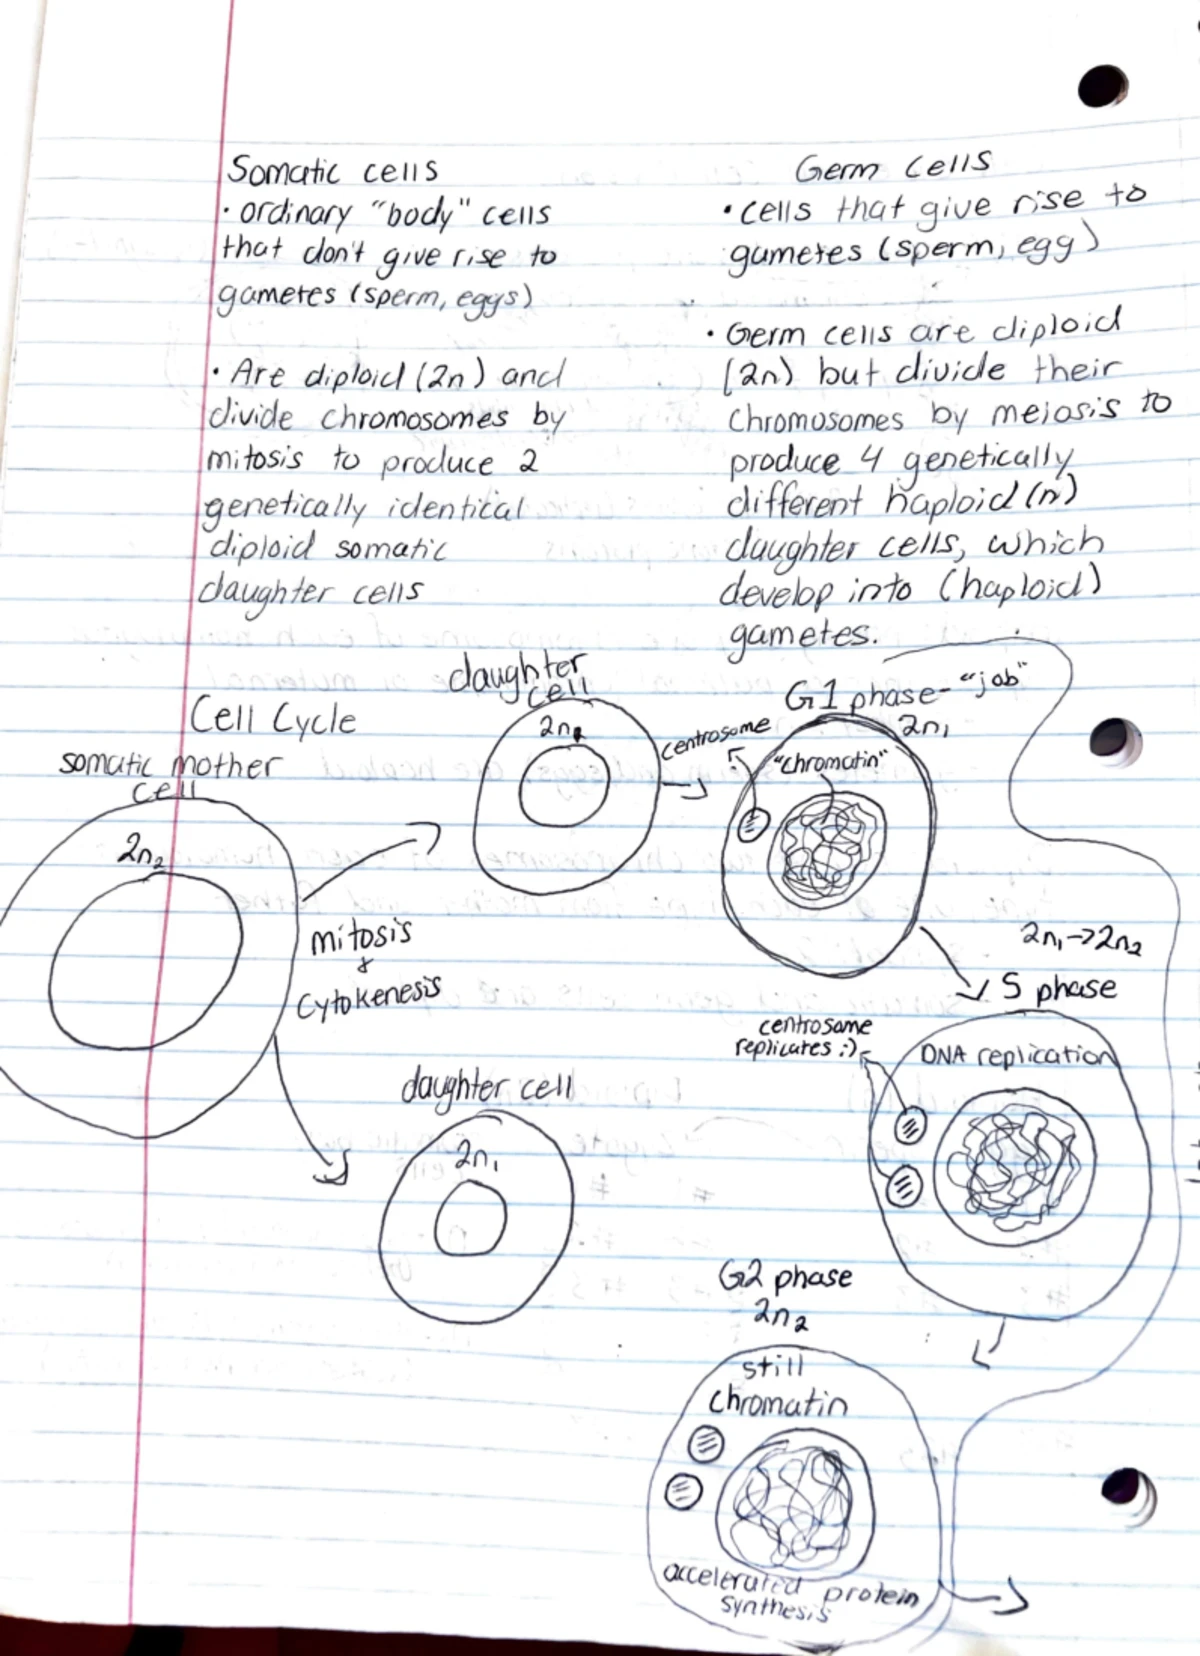 Somatic cells
· ordinary "body" cells
that don't give rise to
gametes (sperm, eggs)
· Are diploid (2n) and
divide chromosomes by
mitosis to produce 2
genetically identical
diploid somatic
daughter cells
Germ Cells
· cells that give rise to
gametes (sperm, egg)
· Germ cells are diploid
(2n) but divide their
chromosomes by meiosis to
produce 4 genetically
different haploid (n)
daughter cells, which
develop into (haploid)
gametes.
Cell Cycle
somatic mother
cell
2n₂
mitosis
+
cytokenesis
daughter
cell
2n
daughter cell
2n₁
G1 phase- "job"
2n₁
centrosome
"chromatin"
2n₁→2n₂
S phase
centrosome
replicates :)
DNA replication
G2 phase
2n₂
still
chromatin
accelerated protein
synthesis